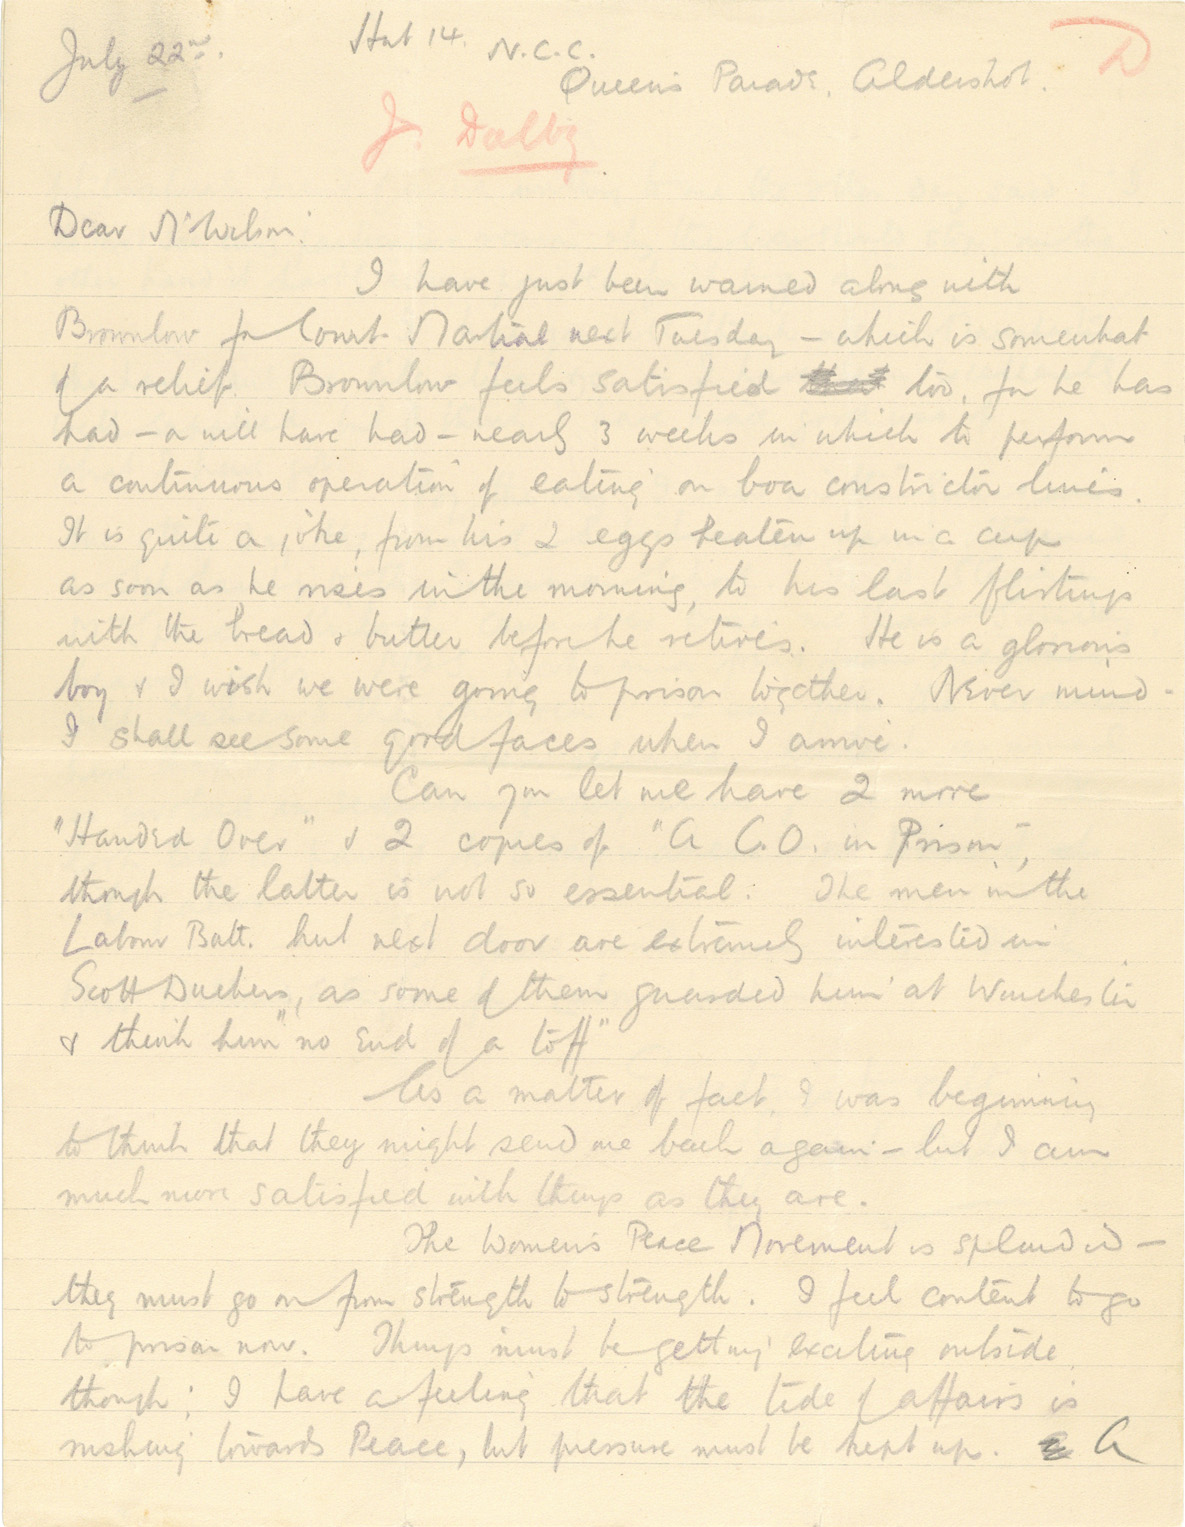 July 22nd.
Hut 14. N.C.C.
Queen's Parade, Aldershot.
D
J. Dalby
Dear Mr Wilson:
I have just been warned along with
Brownlow for Court Martial next Tuesday – which is somewhat
of a relief. Brownlow feels satisfied too, for he has
had – or will have had – nearly 3 weeks in which to perform
a continuous operation of eating on boa constrictor lines.
It is quite a joke, from his 2 eggs beaten up in a cup
as soon as he rises in the morning, to his last flirtings
with the bread & butter before he retires. He is a glorious
boy & I wish we were going to prison together. Never mind –
I shall see some good faces when I arrive.
Can you let me have 2 more
"Handed Over" & 2 copies of "A C.O. in Prison",
though the latter is not so essential: The men in the
Labour Batt. hut next door are extremely interested in
Scott Duckers, as some of them guarded him at Winchester
& think him "no end of a toff"
As a matter of fact I was beginning
to think that they might send me back again – but I am
much more satisfied with things as they are.
The Women's Peace Movement is splendid –
they must go on from strength to strength. I feel content to go
to prison now. Things must be getting exciting outside
though; I have a feeling that the tide of affairs is
rushing towards Peace, but pressure must be kept up. A